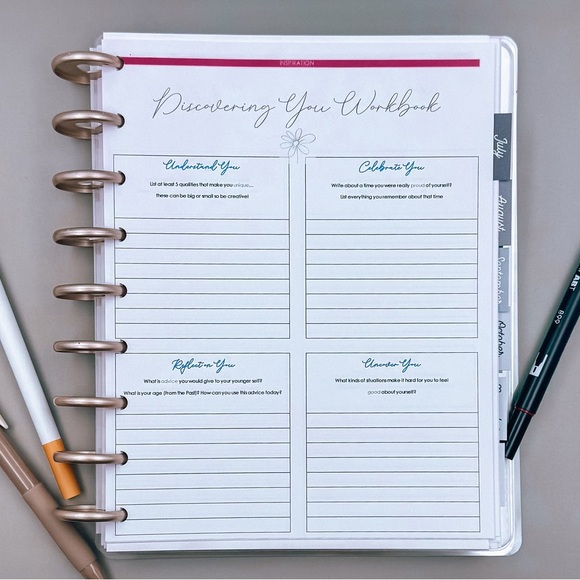 INSPIRATION
Discovering You Workbook
Understand You
List at least 5 qualities that make you unique...
these can be big or small so be creative!
Celebrate You
Write about a time you were really proud of yourself?
List everything you remember about that time
Reflect on You
What is advice you would give to your younger self?
What is your age (from the Past)? How can you use this advice today?
Uncover You
What kinds of situations make it hard for you to feel
good about yourself?
July
August
September
October
ART
899